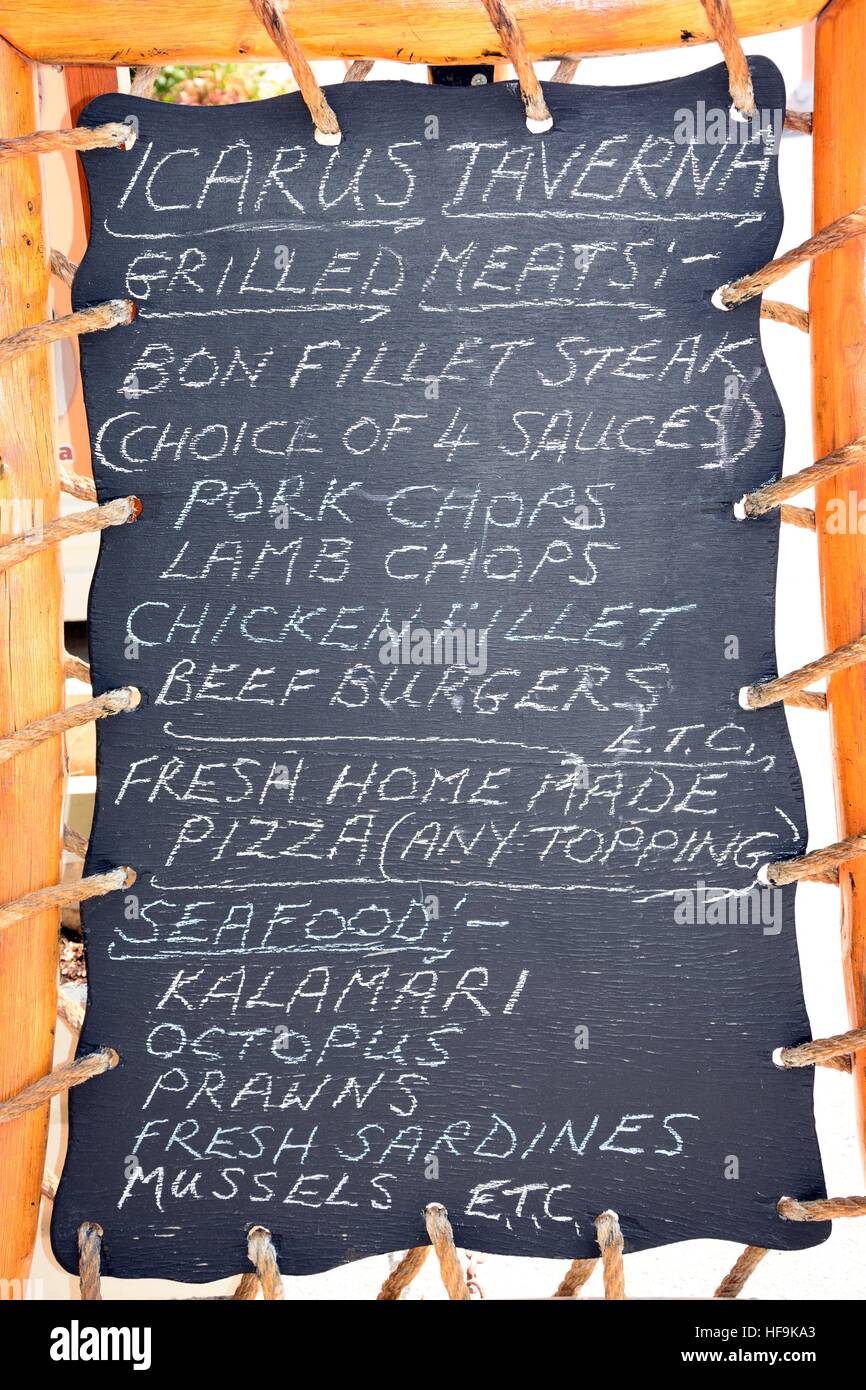 ICARUS TAVERNA
GRILLED MEATS:-
BON FILLET STEAK
(CHOICE OF 4 SAUCES)
PORK CHOPS
LAMB CHOPS
CHICKEN FILLET
BEEF BURGERS
E.T.C.,
FRESH HOME MADE
PIZZA (ANY TOPPING)
SEAFOOD:-
KALAMARI
OCTOPUS
PRAWNS
FRESH SARDINES
MUSSELS E,T,C,
alamy
Image ID: HF9KA3
www.alamy.com